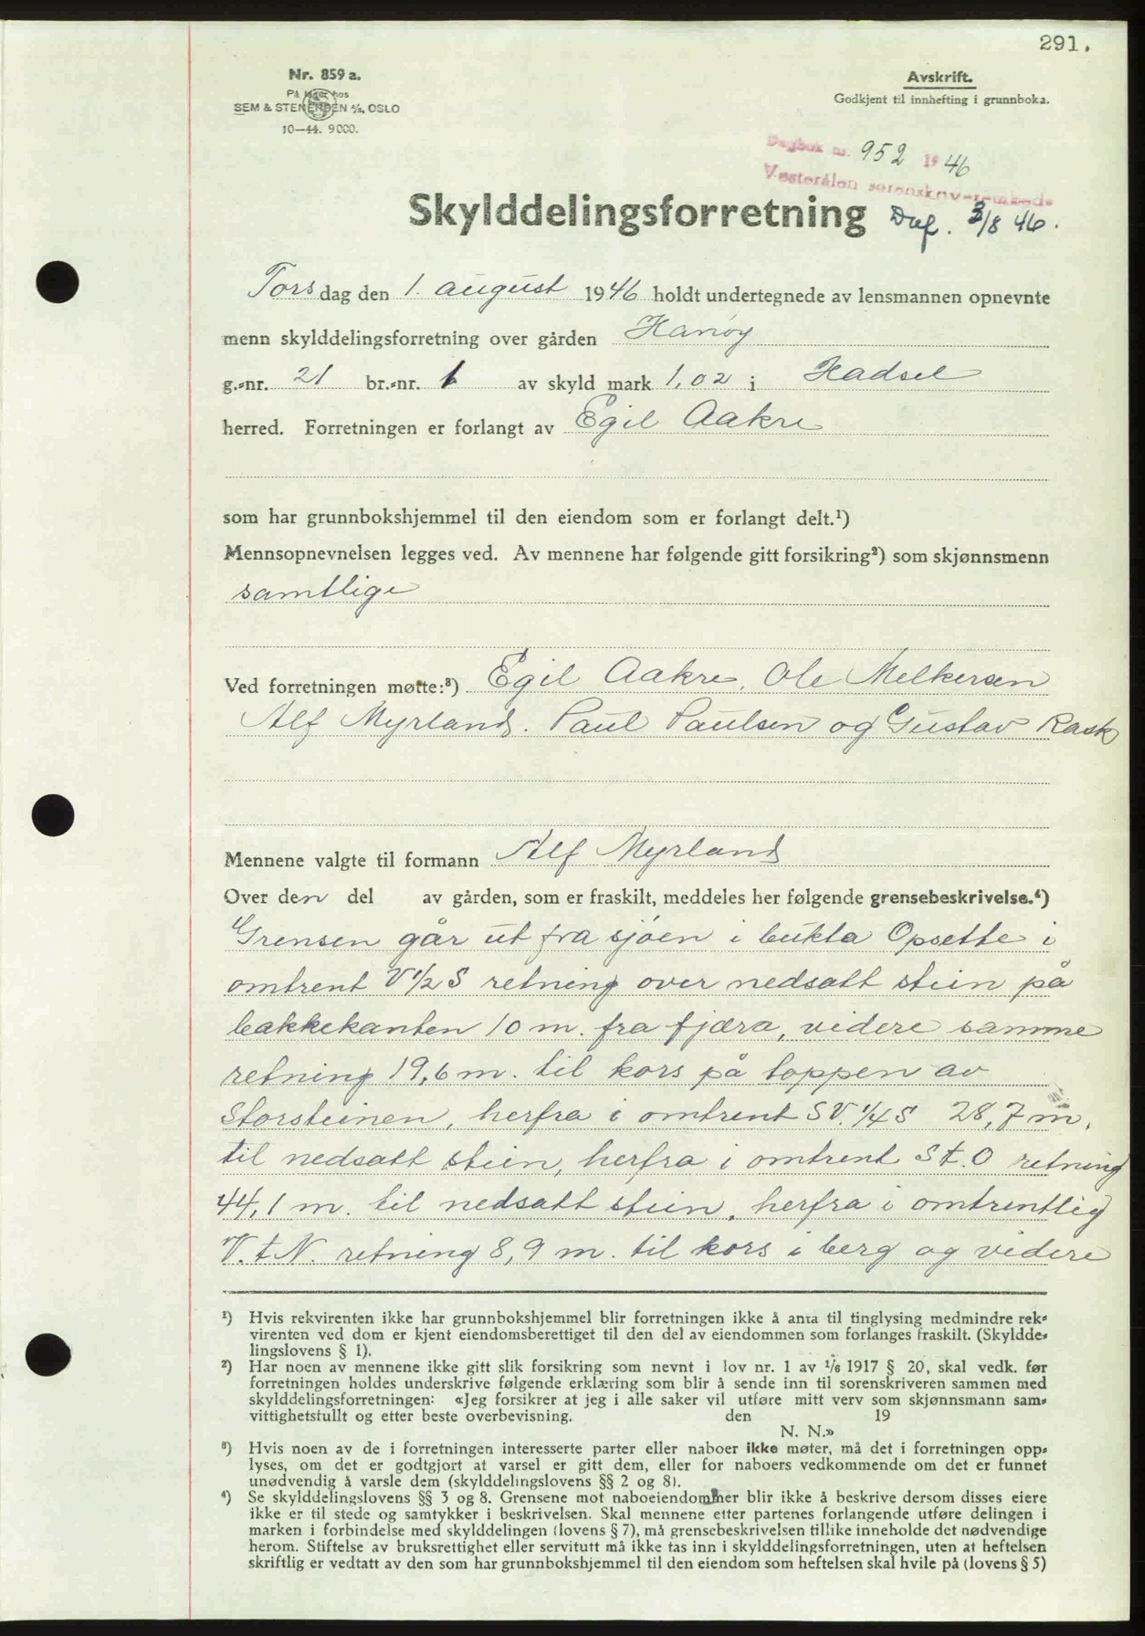 291.
Nr. 859 a.
På lager hos
SEM & STENERSEN A/S, OSLO
10—44. 9000.
Avskrift.
Godkjent til innhefting i grunnboka.
Dagbok nr. 952 1946
Vesterålen sorenskriverembede
Skylddelingsforretning
3/8 46.
Torsdag den 1. august 1946 holdt undertegnede av lensmannen opnevnte
menn skylddelingsforretning over gården Hanøy
g.-nr. 21 br.-nr. 1 av skyld mark 1,02 i Hadsel
herred. Forretningen er forlangt av Egil Aakre
som har grunnbokshjemmel til den eiendom som er forlangt delt.¹)
Mennsopnevnelsen legges ved. Av mennene har følgende gitt forsikring²) som skjønnsmenn
samtlige
Ved forretningen møtte:³) Egil Aakre, Ole Melkersen
Alf Myrland. Paul Paulsen og Gustav Rask
Mennene valgte til formann Alf Myrland
Over den del av gården, som er fraskilt, meddeles her følgende grensebeskrivelse.⁴)
Grensen går ut fra sjøen i bukta Opsette i
omtrent V 1/2 S retning over nedsatt stein på
bakkekanten 10 m. fra fjæra, videre samme
retning 19,6 m. til kors på toppen av
Storsteinen, herfra i omtrent SV. 1/4 S 28,7 m.
til nedsatt stein, herfra i omtrent S t. O retning
44,1 m. til nedsatt stein, herfra i omtrentlig
V. t N. retning 8,9 m. til kors i berg og videre
¹) Hvis rekvirenten ikke har grunnbokshjemmel blir forretningen ikke å anta til tinglysing medmindre rek-
virenten ved dom er kjent eiendomsberettiget til den del av eiendommen som forlanges fraskilt. (Skyldde-
lingslovens § 1).
²) Har noen av mennene ikke gitt slik forsikring som nevnt i lov nr. 1 av 1/6 1917 § 20, skal vedk. før
forretningen holdes underskrive følgende erklæring som blir å sende inn til sorenskriveren sammen med
skylddelingsforretningen: «Jeg forsikrer at jeg i alle saker vil utføre mitt verv som skjønnsmann sam-
vittighetsfullt og etter beste overbevisning. den 19
N. N.»
³) Hvis noen av de i forretningen interesserte parter eller naboer ikke møter, må det i forretningen opp-
lyses, om det er godtgjort at varsel er gitt dem, eller for naboers vedkommende om det er funnet
unødvendig å varsle dem (skylddelingslovens §§ 2 og 8).
⁴) Se skylddelingslovens §§ 3 og 8. Grensene mot naboeiendommer blir ikke å beskrive dersom disses eiere
ikke er til stede og samtykker i beskrivelsen. Skal mennene etter partenes forlangende utføre delingen i
marken i forbindelse med skylddelingen (lovens § 7), må grensebeskrivelsen tillike inneholde det nødvendige
herom. Stiftelse av bruksrettighet eller servitutt må ikke tas inn i skylddelingsforretningen, uten at heftelsen
skriftlig er vedtatt av den som har grunnbokshjemmel til den eiendom som heftelsen skal hvile på (lovens § 5)